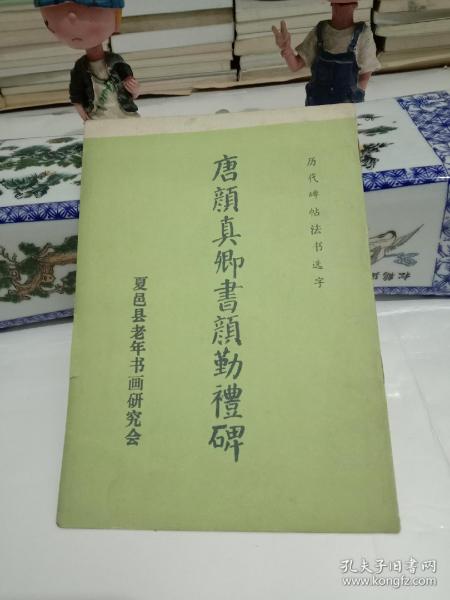 历代碑帖法书选字
唐顔真卿書顔勤禮碑
夏邑县老年书画研究会
孔夫子旧书网
www.kongfz.com